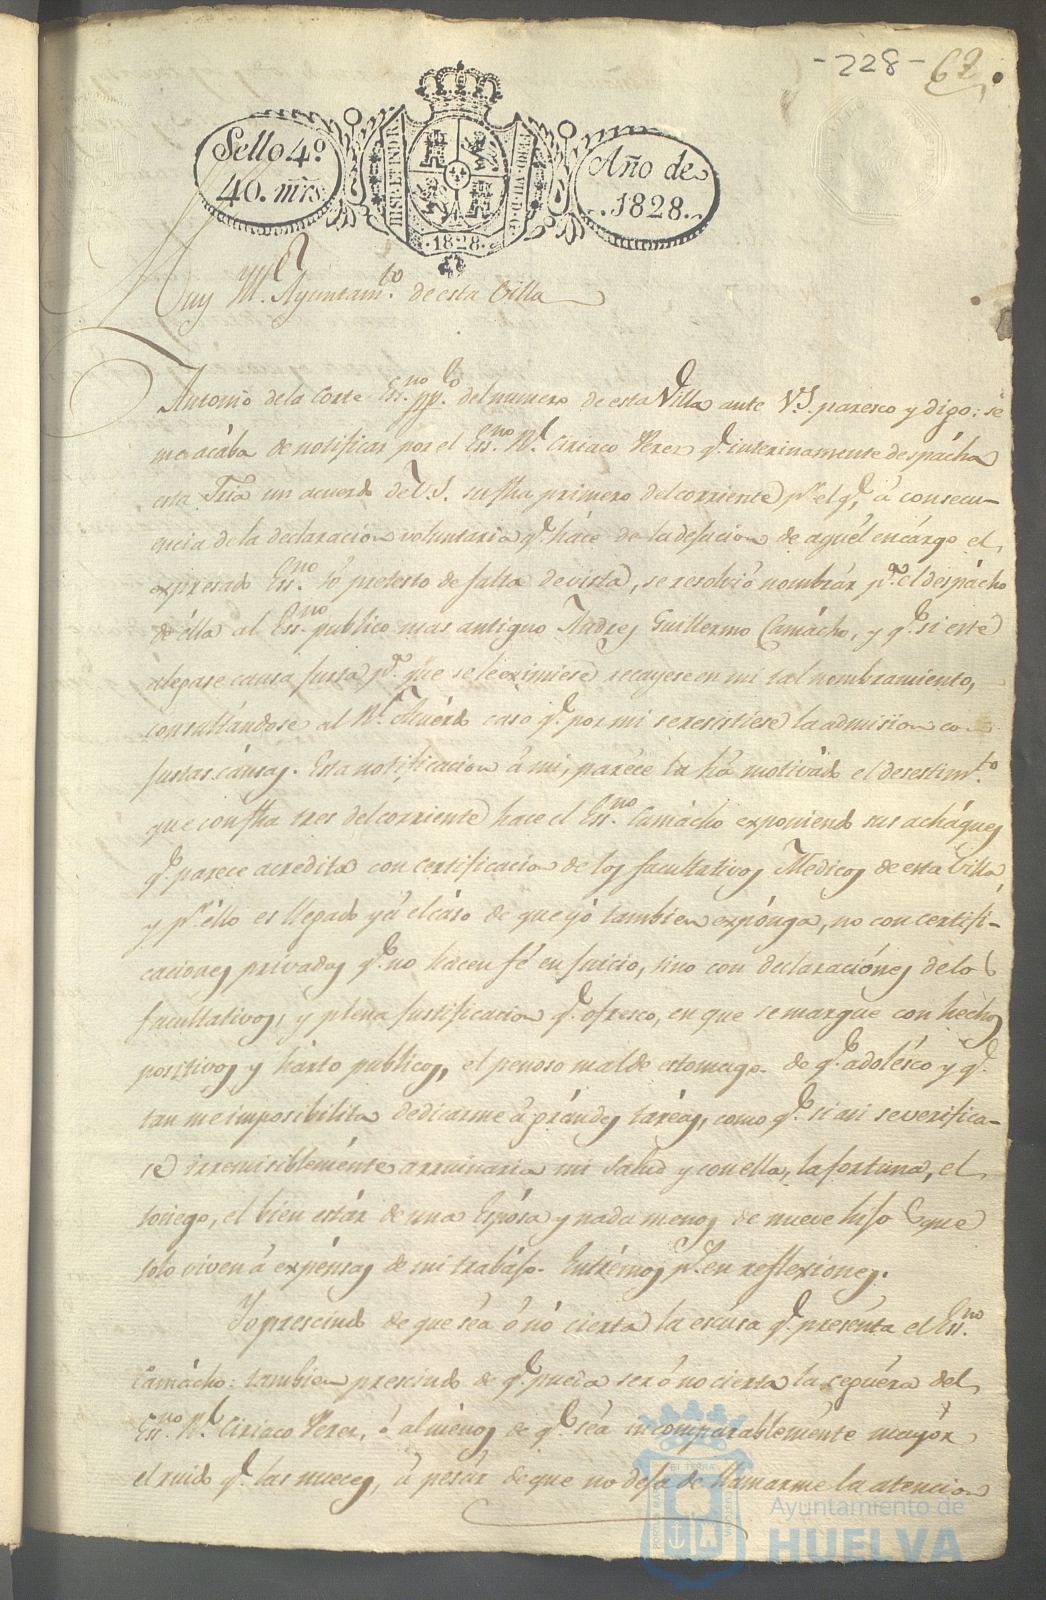 -228- 62.
Sello 4º
40. mrs.
HISP. ET IND. R.
FERD. VII. D. G.
1828.
Año de
1828.
Muy Ml. Ayuntamto. de esta Villa
Antonio de la Corte Essno. ppco. del numero de esta Villa ante V.S. paresco y digo: se
me acába de notificar por el Essno. Rl. Ciriaco Perez ql. interinamente despácha
esta Sria un acuerdo de V.S. su fha primero del corriente pr. el ql. á consecu-
encia de la declaracion voluntaria ql. háce de la dejacion de aquél encárgo el
expresado Essno. só pretesto de falta de vista, se resolvió nombrár pa. el despácho
de élla al Essno. publico mas antiguo Andres Guillermo Camácho, y ql. si este
alegase causa justa pa. que se le eximiere recayese en mi tal nombramiento,
consultándose al Rl. Acuérdo caso ql. por mi se resistiese la admision co
justas cáusas. Esta notificacion á mi, paréce la há motivádo el desestimto.
que con fha tres del corriente hace el Essno. Camácho exponiendo sus acháques
ql. parece acredita con certificacion de los facultativos Medicos de esta Villa,
y pr. éllo es llegado yá el cáso de que yó tambien expónga, no con certifi-
caciones privadas ql. no hacen fé en juicio, sino con declaraciónes de los
facultativos, y plena justificacion ql. ofresco, en que se marque con hechos
positivos y hárto publicos, el penoso mal de estomago de ql. adolésco y ql.
tan me imposibilita dedicarme á grándes taréas, como ql. si asi se verifica-
se irremisiblemente arruinaria mi salud y con ella, la fortuna, el
sosiego, el bien estár de una Espósa y nada menos de nueve hijos que
solo viven á expénsas de mi trabájo. Entrémos ps. en reflexiones.
Yo prescindo de que séa ó nó cierta la escusa ql. presénta el Essno.
Camácho: tambien prescindo de ql. pueda ser ó no cierta la ceguéra del
Essno. Rl. Ciriaco Perez, ó al ménos de ql. séa incomparablemente mayór
el ruido ql. las nueces, á pesár de que no deja de llamarme la atencion
Ayuntamiento de
HUELVA